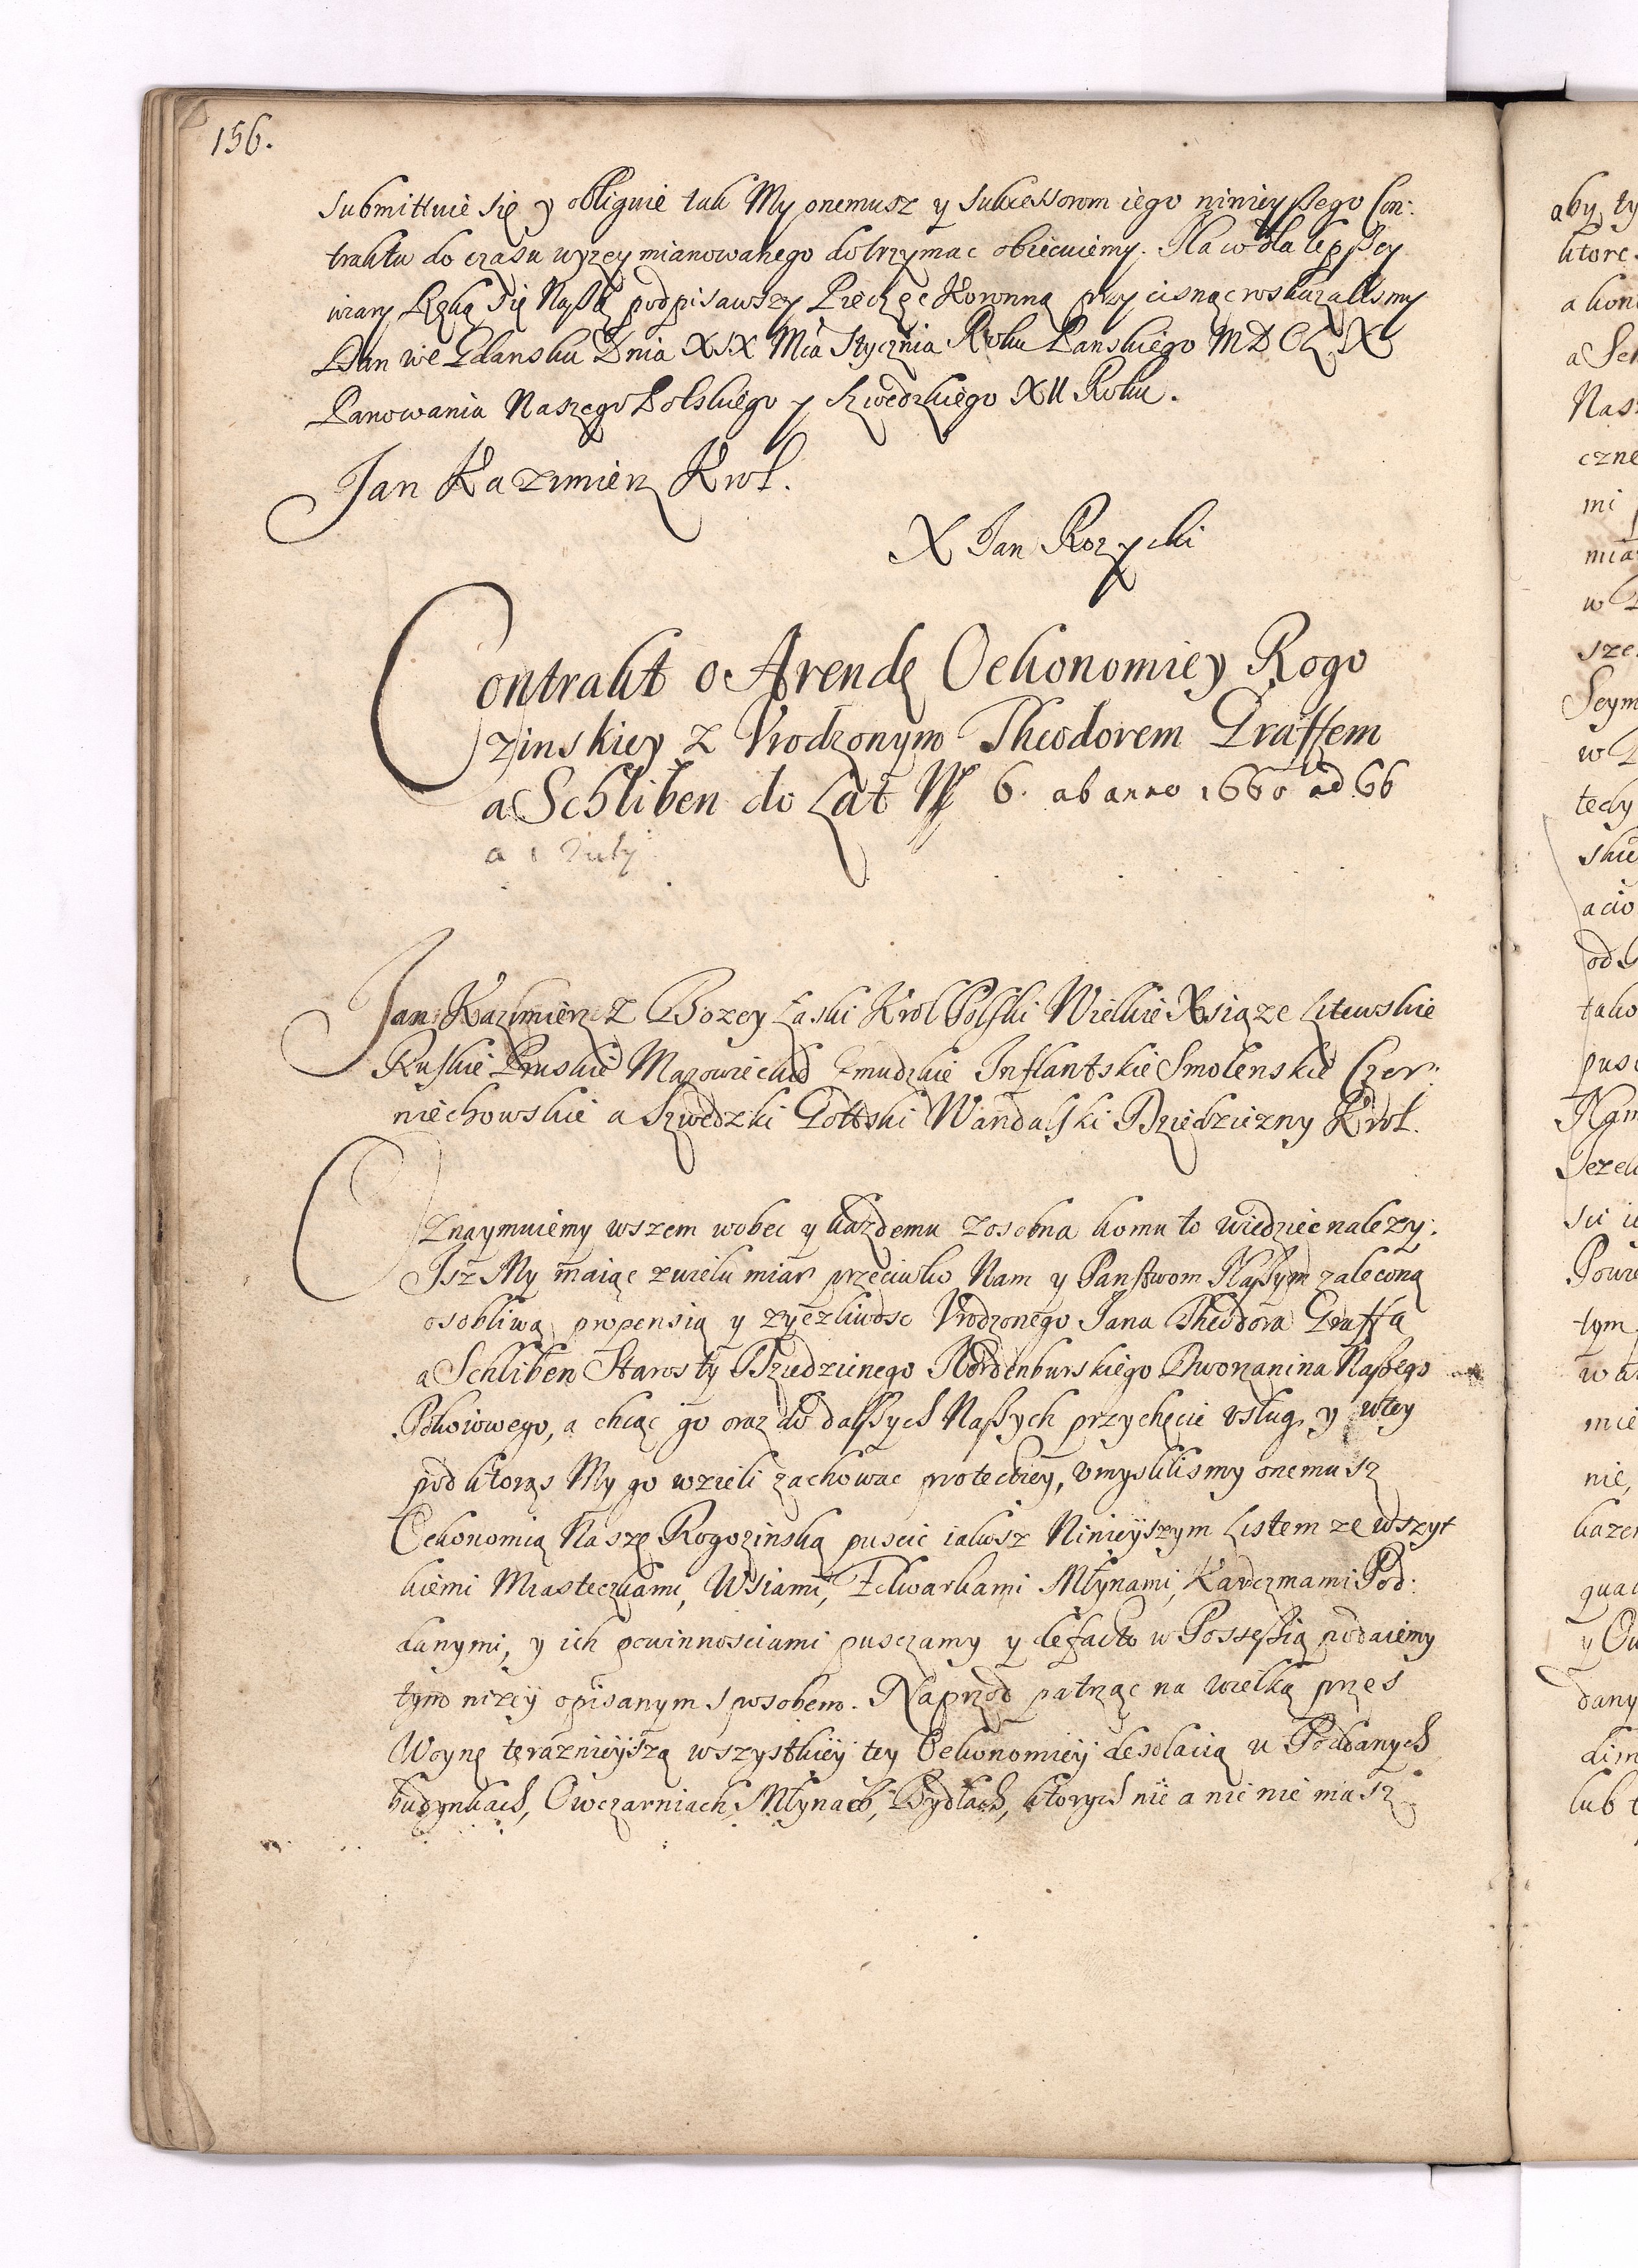 156.
submittuie się y obliguie tak My onemusz y sukcessorom iego ninieyßego Con:
traktu do czasu wyzey mianowanego dotrzymac obiecuiemy. Na co dla lepßey
wiary Ręką się Naßą podpisawszy Pieczęc Koronną przycisnąc roskazalismy
Dan we Gdansku Dnia XIX Mca Stycznia Roku Panskiego MDCLX
Panowania Naszego Polskiego y Szwedzkiego XII Roku.
Jan Kazimierz Krol.
X Jan Rozycki
Contrakt o Arendę Oekonomiey Rogo
zinskiey z Vrodzonym Theodorem Graffem
a Schliben do Lat 6. ab anno 1660 ad 66
a 1 July
Jan Kazimierz Z Bozey Łaski Krol Polski Wielkie Xsiąze Litewskie
Ruskie Pruskie Mazowieckie Zmudzkie Inflantskie Smolenskie Czer:
niechowskie a Szwedzki Gottski Wandalski Dziedziczny Krol.
Oznaymuiemy wszem wobec y kazdemu zosobna komu to wiedziec nalezy:
Isz My maiąc zwielu miar przeciwko Nam y Panstwom Naßym zaleconą
osobliwą propensią y zyczliwosc Vrodzonego Jana Theodora Graffa
a Schliben Starosty Dziedzicnego Nordenburskiego Dworzanina Naßego
Pokoiowego, a chcąc go oraz do dalßych Naßych przychęcic vsług, y wtey
pod ktorąs My go wzieli zachowac protectiey, vmyslilismy onemusz
Oekonomią Naszę Rogozinską puscic iakosz Ninieyszym Listem ze wszyt
kiemi Miasteczkami, Wsiami, Folwarkami Młynami, Karczmami Pod:
danymi, y ich powinnosciami pusczamy y de facto w Posseßią podaiemy
tym nizey opisanym sposobem. Naprzod patrząc na wielką przes
Woynę teraznieyszą wszystkiey tey Oekonomiey desolacią u Poddanych
budynkach, Owczarniach, Młynach, Bydłach, ktorych nic a nic nie masz